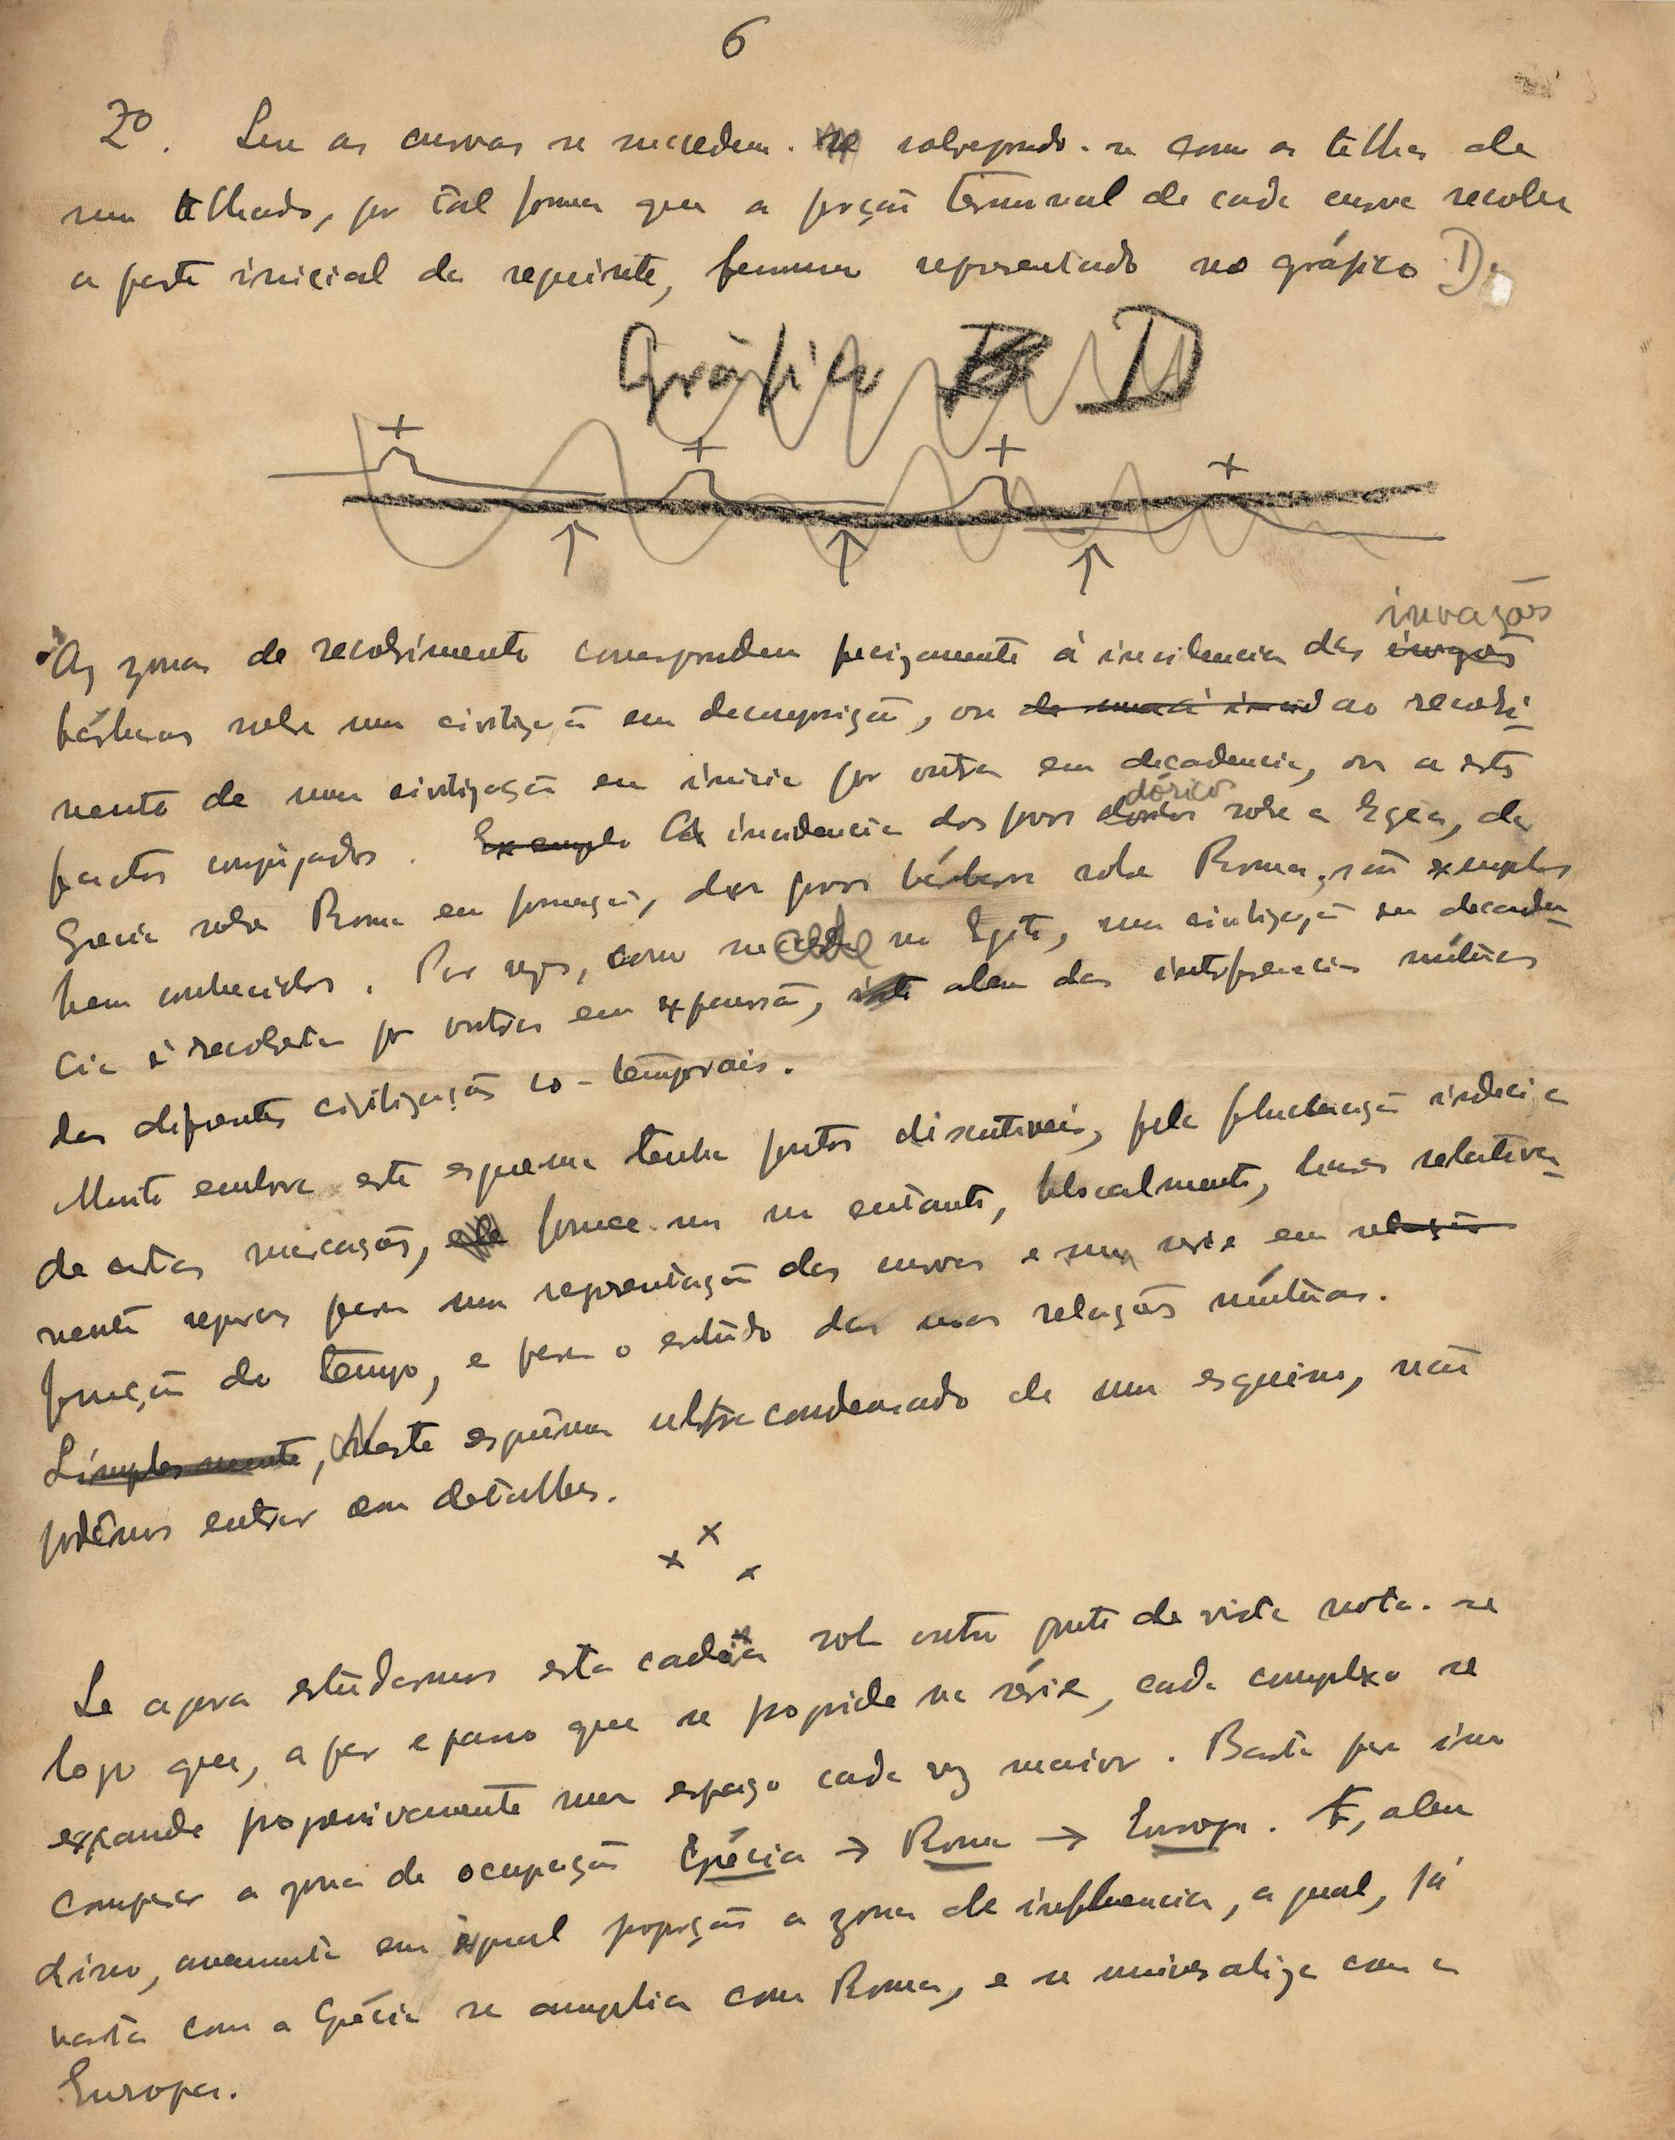 6
2º. Que as curvas se sucedem sobrepondo-se como as telhas de
um telhado, por tal forma que a porção terminal de cada curva recobre
a parte inicial da seguinte, fenomeno representado no gráfico D.
Gráfico D
+ + + +
invasões
As zonas de recobrimento correspondem precizamente á incidencia das
bárbaras sobre uma civilização em decomposição, ou ao recobri-
mento de uma civilização em inicio por outra em decadencia, ou a estes
dóricos
factos conjugados. A incidencia dos povos sobre a Egea, da
Grecia sobre Roma em formação, dos povos bárbaros sobre Roma, são exemplos
bem conhecidos. Por vezes, como no Egito, uma civilização em decaden-
cia é recoberta por outras em expansão, alem das interferencias mútuas
das diferentes civilizações co-temporais.
Muito embora este esquema tenha pontos discutiveis, pela fluctuação indecisa
de certas marcações, fornece-nos no entanto, globalmente, bases relativa-
mente seguras para uma representação das curvas e sua serie em
função do tempo, e para o estúdo das suas relações mútuas.
Neste esquêma ultra condensado de um esquema, não
podêmos entrar em detalhes.
x x x
Se agora estúdarmos esta cadeia sob outro ponto de vista nota-se
logo que, a par e passo que se progride na série, cada complexo se
expande progressivamente num espaço cada vez maior. Basta para isso
comparar a zona de ocupação Grécia → Roma → Europa. E, alem
disso, aumenta em igual proporção a zona de influencia, a qual, já
vasta com a Grécia se amplia com Roma, e se universaliza com a
Europa.